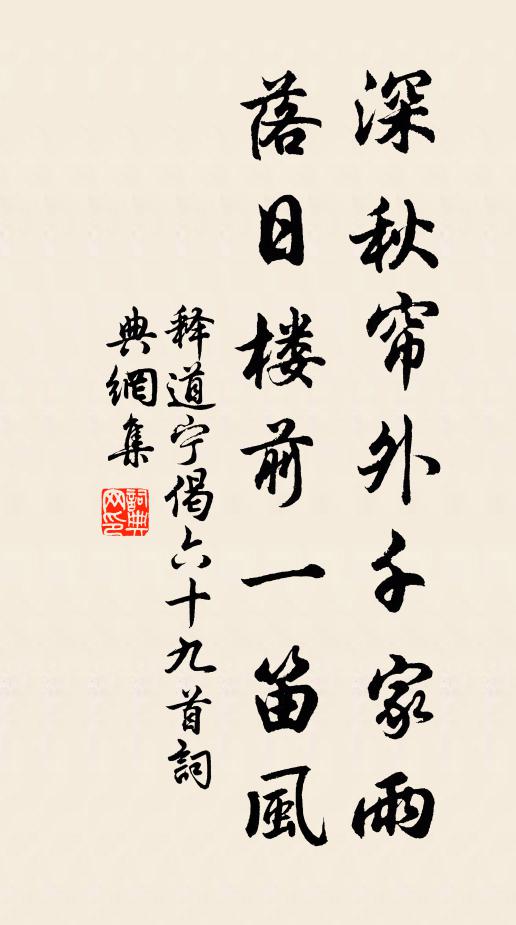 深秋帘外千家雨
落日楼前一笛風
释道宁偈六十九首詞
典網集
詞典网印